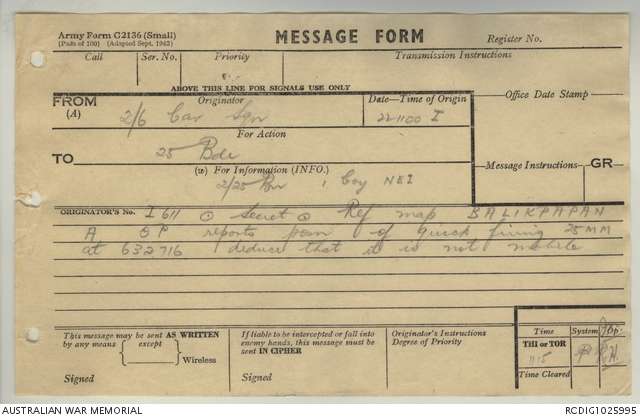 Army Form C2136 (Small)
(Pads of 100) (Adapted Sept. 1942)
MESSAGE FORM
Register No.
Call Ser. No. Priority Transmission Instructions
ABOVE THIS LINE FOR SIGNALS USE ONLY
FROM Originator Date—Time of Origin Office Date Stamp
(A) 2/6 Cav Sqn 221100 I
For Action
TO 25 Bde
(w) For Information (INFO.) Message Instructions GR
2/25 Bn 1 Coy NEI
ORIGINATOR'S No. I 611 ⊙ Secret ⊙ Ref map BALIKPAPAN
A OP reports posn of quick firing 25 MM
at 632716 deduce that it is not mobile
This message may be sent AS WRITTEN
by any means except
Wireless
Signed
If liable to be intercepted or fall into
enemy hands, this message must be
sent IN CIPHER
Signed
Originator's Instructions
Degree of Priority
Time System Op.
THI or TOR
1115
Time Cleared
AUSTRALIAN WAR MEMORIAL RCDIG1025995